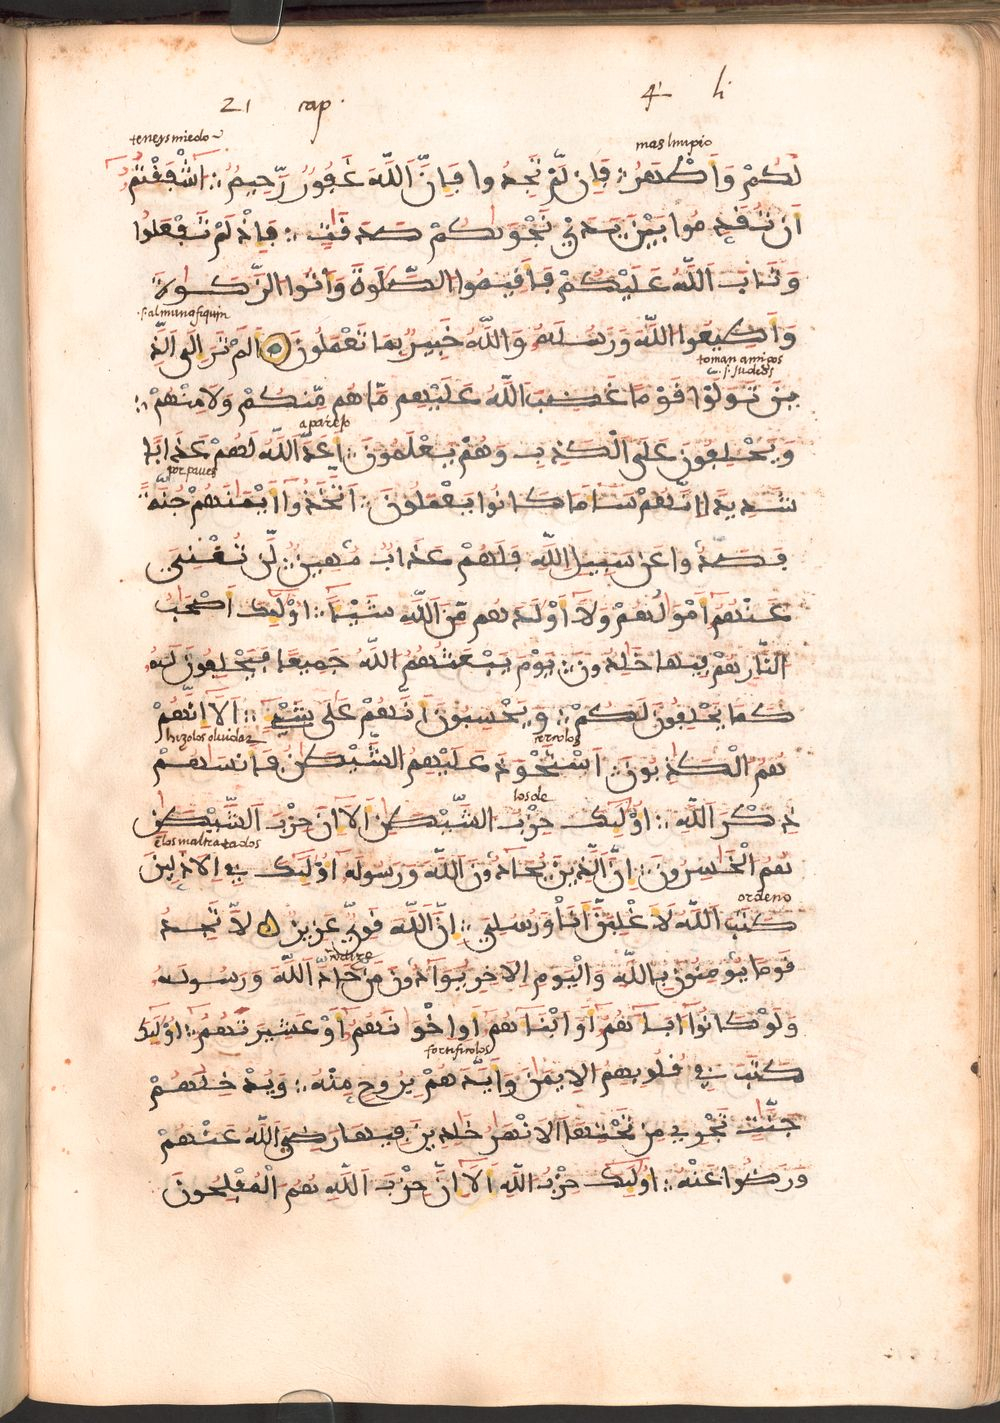 21 cap. 4 li
teneys miedo mas limpio
لَكُمْ وَأَطْهَرُ فَإِن لَّمْ تَجِدُوا فَإِنَّ اَللَّهَ غَفُورٌ رَّحِيمٌ ءَاشْفَقْتُمُ
أَن تُقَدِّمُوا بَيْنَ يَدَيْ نَجْوَىٰكُمْ صَدَقَٰتٍ فَإِذْ لَمْ تَفْعَلُوا
وَتَابَ اَللَّهُ عَلَيْكُمْ فَأَقِيمُوا الصَّلَوٰةَ وَءَاتُوا الزَّكَوٰةَ
.s. almunafiquin
وَأَطِيعُوا اللَّهَ وَرَسُولَهُ وَاللَّهُ خَبِيرٌ بِمَا تَعْمَلُونَ أَلَمْ تَرَ إِلَى اَلَّذِ
toman amigos
.s. Judeos
ينَ تَوَلَّوْا قَوْمًا غَضِبَ اَللَّهُ عَلَيْهِم مَّا هُم مِّنكُمْ وَلَا مِنْهُمْ
aparejo
وَيَحْلِفُونَ عَلَى الْكَذِبِ وَهُمْ يَعْلَمُونَ أَعَدَّ اَللَّهُ لَهُمْ عَذَابًا
por paues
شَدِيدًا إِنَّهُمْ سَاءَ مَا كَانُوا يَعْمَلُونَ اَتَّخَذُوا أَيْمَٰنَهُمْ جُنَّةً
فَصَدُّوا عَن سَبِيلِ اللَّهِ فَلَهُمْ عَذَابٌ مُّهِينٌ لَّن تُغْنِيَ
عَنْهُمُ أَمْوَٰلُهُمْ وَلَا أَوْلَٰدُهُم مِّنَ اَللَّهِ شَيْئًا أُوْلَٰئِكَ أَصْحَٰبُ
النَّارِ هُمْ فِيهَا خَٰلِدُونَ يَوْمَ يَبْعَثُهُمُ اللَّهُ جَمِيعًا فَيَحْلِفُونَ لَهُ
كَمَا يَحْلِفُونَ لَكُمْ وَيَحْسِبُونَ أَنَّهُمْ عَلَىٰ شَيْءٍ أَلَا إِنَّهُمْ
hizolos oluidar
هُمُ الْكَٰذِبُونَ اَسْتَحْوَذَ عَلَيْهِمُ الشَّيْطَٰنُ فَأَنسَىٰهُمْ
los de
ذِكْرَ اَللَّهِ أُوْلَٰئِكَ حِزْبُ الشَّيْطَٰنِ أَلَا إِنَّ حِزْبَ اَلشَّيْطَٰنِ
elos maltratados
هُمُ الْخَٰسِرُونَ إِنَّ اَلَّذِينَ يُحَادُّونَ اَللَّهَ وَرَسُولَهُ أُوْلَٰئِكَ فِي الْأَذَلِّينَ
ordeno
كَتَبَ اَللَّهُ لَأَغْلِبَنَّ أَنَا وَرُسُلِيَ إِنَّ اَللَّهَ قَوِيٌّ عَزِيزٌ لَّا تَجِدُ
قَوْمًا يُؤْمِنُونَ بِاللَّهِ وَالْيَوْمِ الْآخِرِ يُوَادُّونَ مَنْ حَادَّ اَللَّهَ وَرَسُولَهُ
وَلَوْ كَانُوا ءَابَاءَهُمْ أَوَ ابْنَاءَهُم أَوِ اخْوَٰنَهُمْ أَوْ عَشِيرَتَهُمُ أُوْلَٰئِكَ
fortificolos
كَتَبَ فِي قُلُوبِهِمُ الْإِيمَٰنَ وَأَيَّدَهُمْ بِرُوحٍ مِنْهُ وَيُدْخِلُهُمْ
جَنَّٰتٍ تَجْرِي مِن تَحْتِهَا الْأَنْهَٰرُ خَٰلِدِينَ فِيهَا رَضِيَ اَللَّهُ عَنْهُمْ
وَرَضُوا عَنْهُ أُوْلَٰئِكَ حِزْبُ اللَّهِ أَلَا إِنَّ حِزْبَ اَللَّهِ هُمُ الْمُفْلِحُونَ